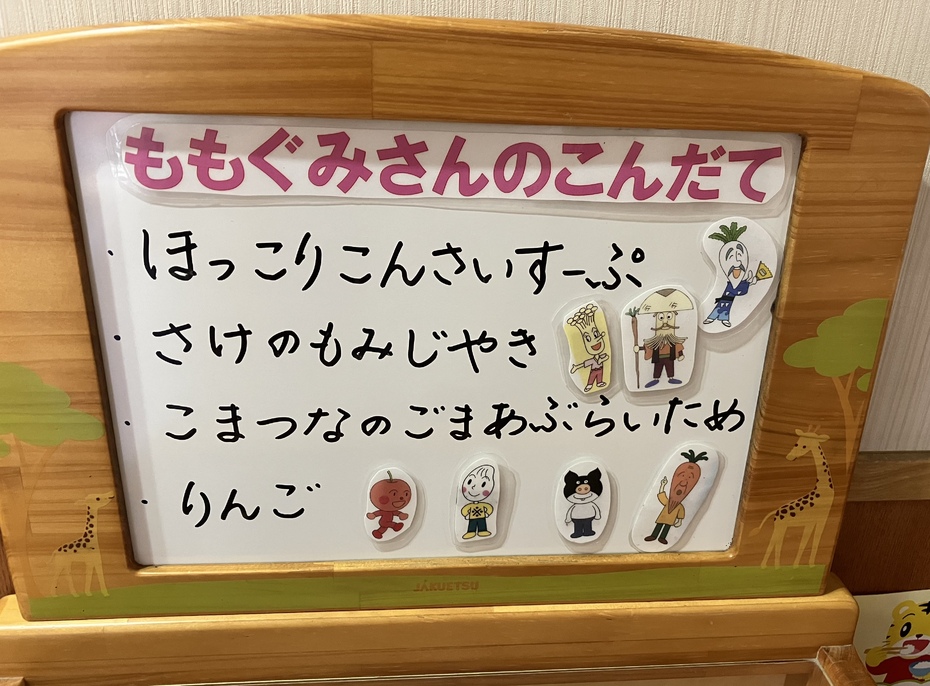 ももぐみさんのこんだて
・ほっこりこんさいすーぷ
・さけのもみじやき
・こまつなのごまあぶらいため
・りんご
JAKUETSU